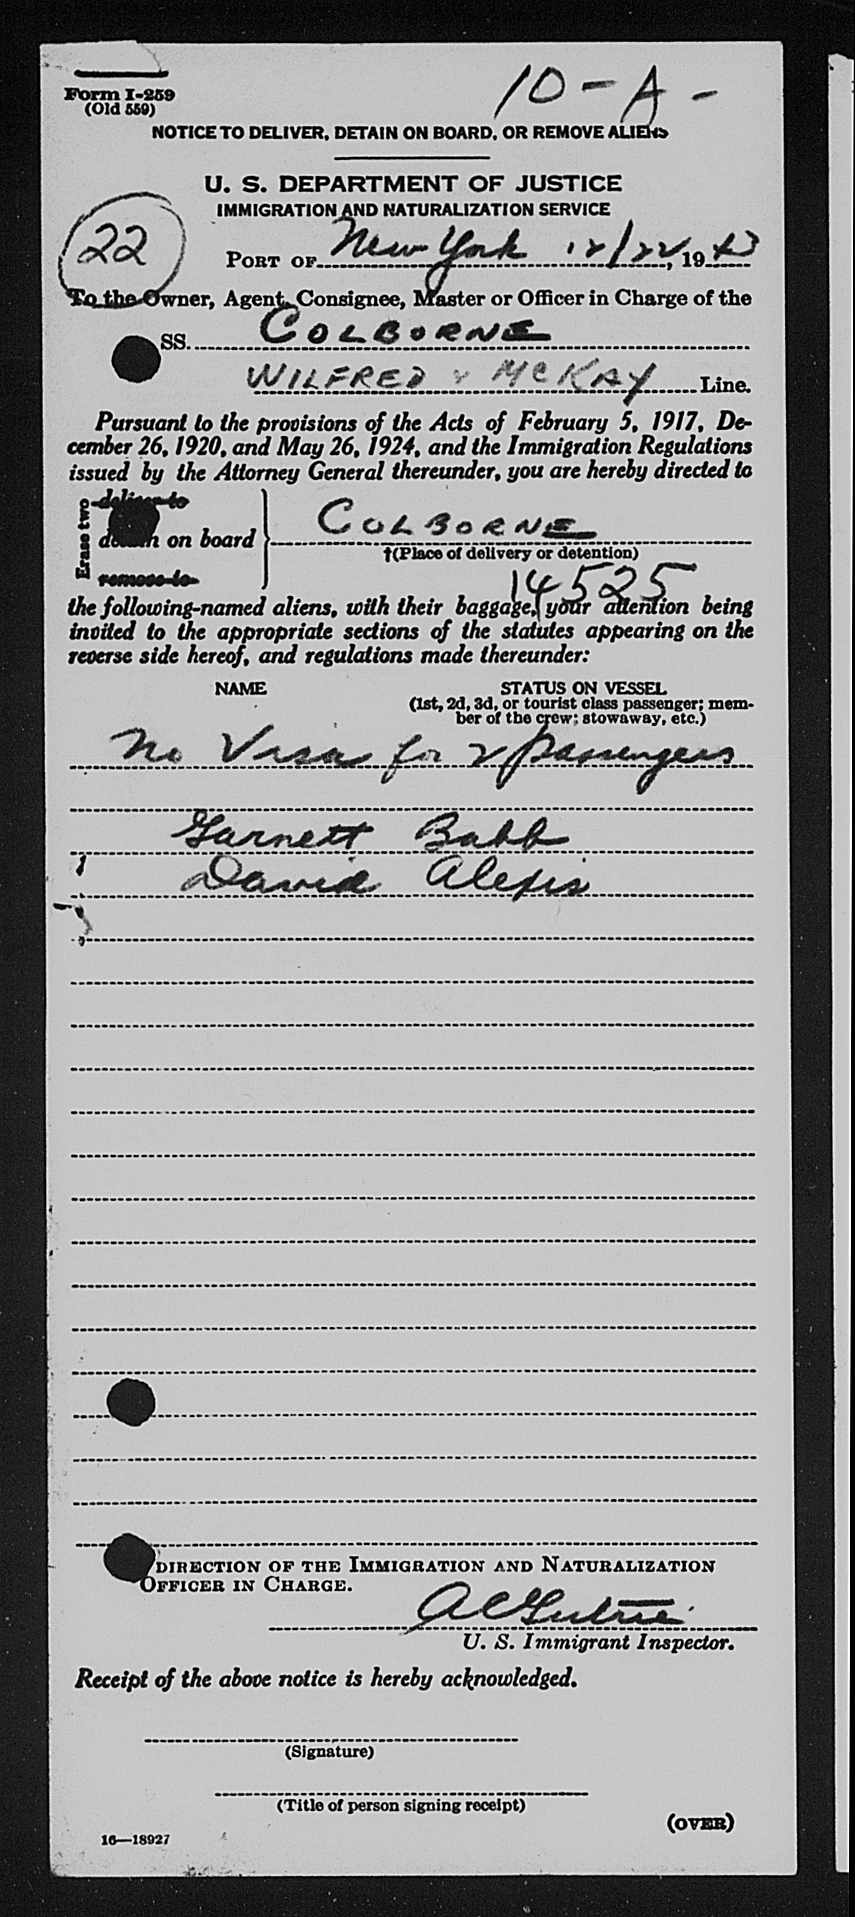 10-A-
Form I-259
(Old 559)
NOTICE TO DELIVER, DETAIN ON BOARD, OR REMOVE ALIENS
U. S. DEPARTMENT OF JUSTICE
IMMIGRATION AND NATURALIZATION SERVICE
22
PORT OF New York 12/22, 1943
To the Owner, Agent, Consignee, Master or Officer in Charge of the
SS. COLBORNE
WILFRED & MCKAY Line.
Pursuant to the provisions of the Acts of February 5, 1917, De-
cember 26, 1920, and May 26, 1924, and the Immigration Regulations
issued by the Attorney General thereunder, you are hereby directed to
Erase two
deliver to
detain on board } COLBORNE
†(Place of delivery or detention)
remove to
14525
the following-named aliens, with their baggage, your attention being
invited to the appropriate sections of the statutes appearing on the
reverse side hereof, and regulations made thereunder:
NAME STATUS ON VESSEL
(1st, 2d, 3d, or tourist class passenger; mem-
ber of the crew; stowaway, etc.)
No Visa for 2 passengers
Garnett Babb
David Alexis
DIRECTION OF THE IMMIGRATION AND NATURALIZATION
OFFICER IN CHARGE.
U. S. Immigrant Inspector.
Receipt of the above notice is hereby acknowledged.
(Signature)
(Title of person signing receipt)
(OVER)
16—18927